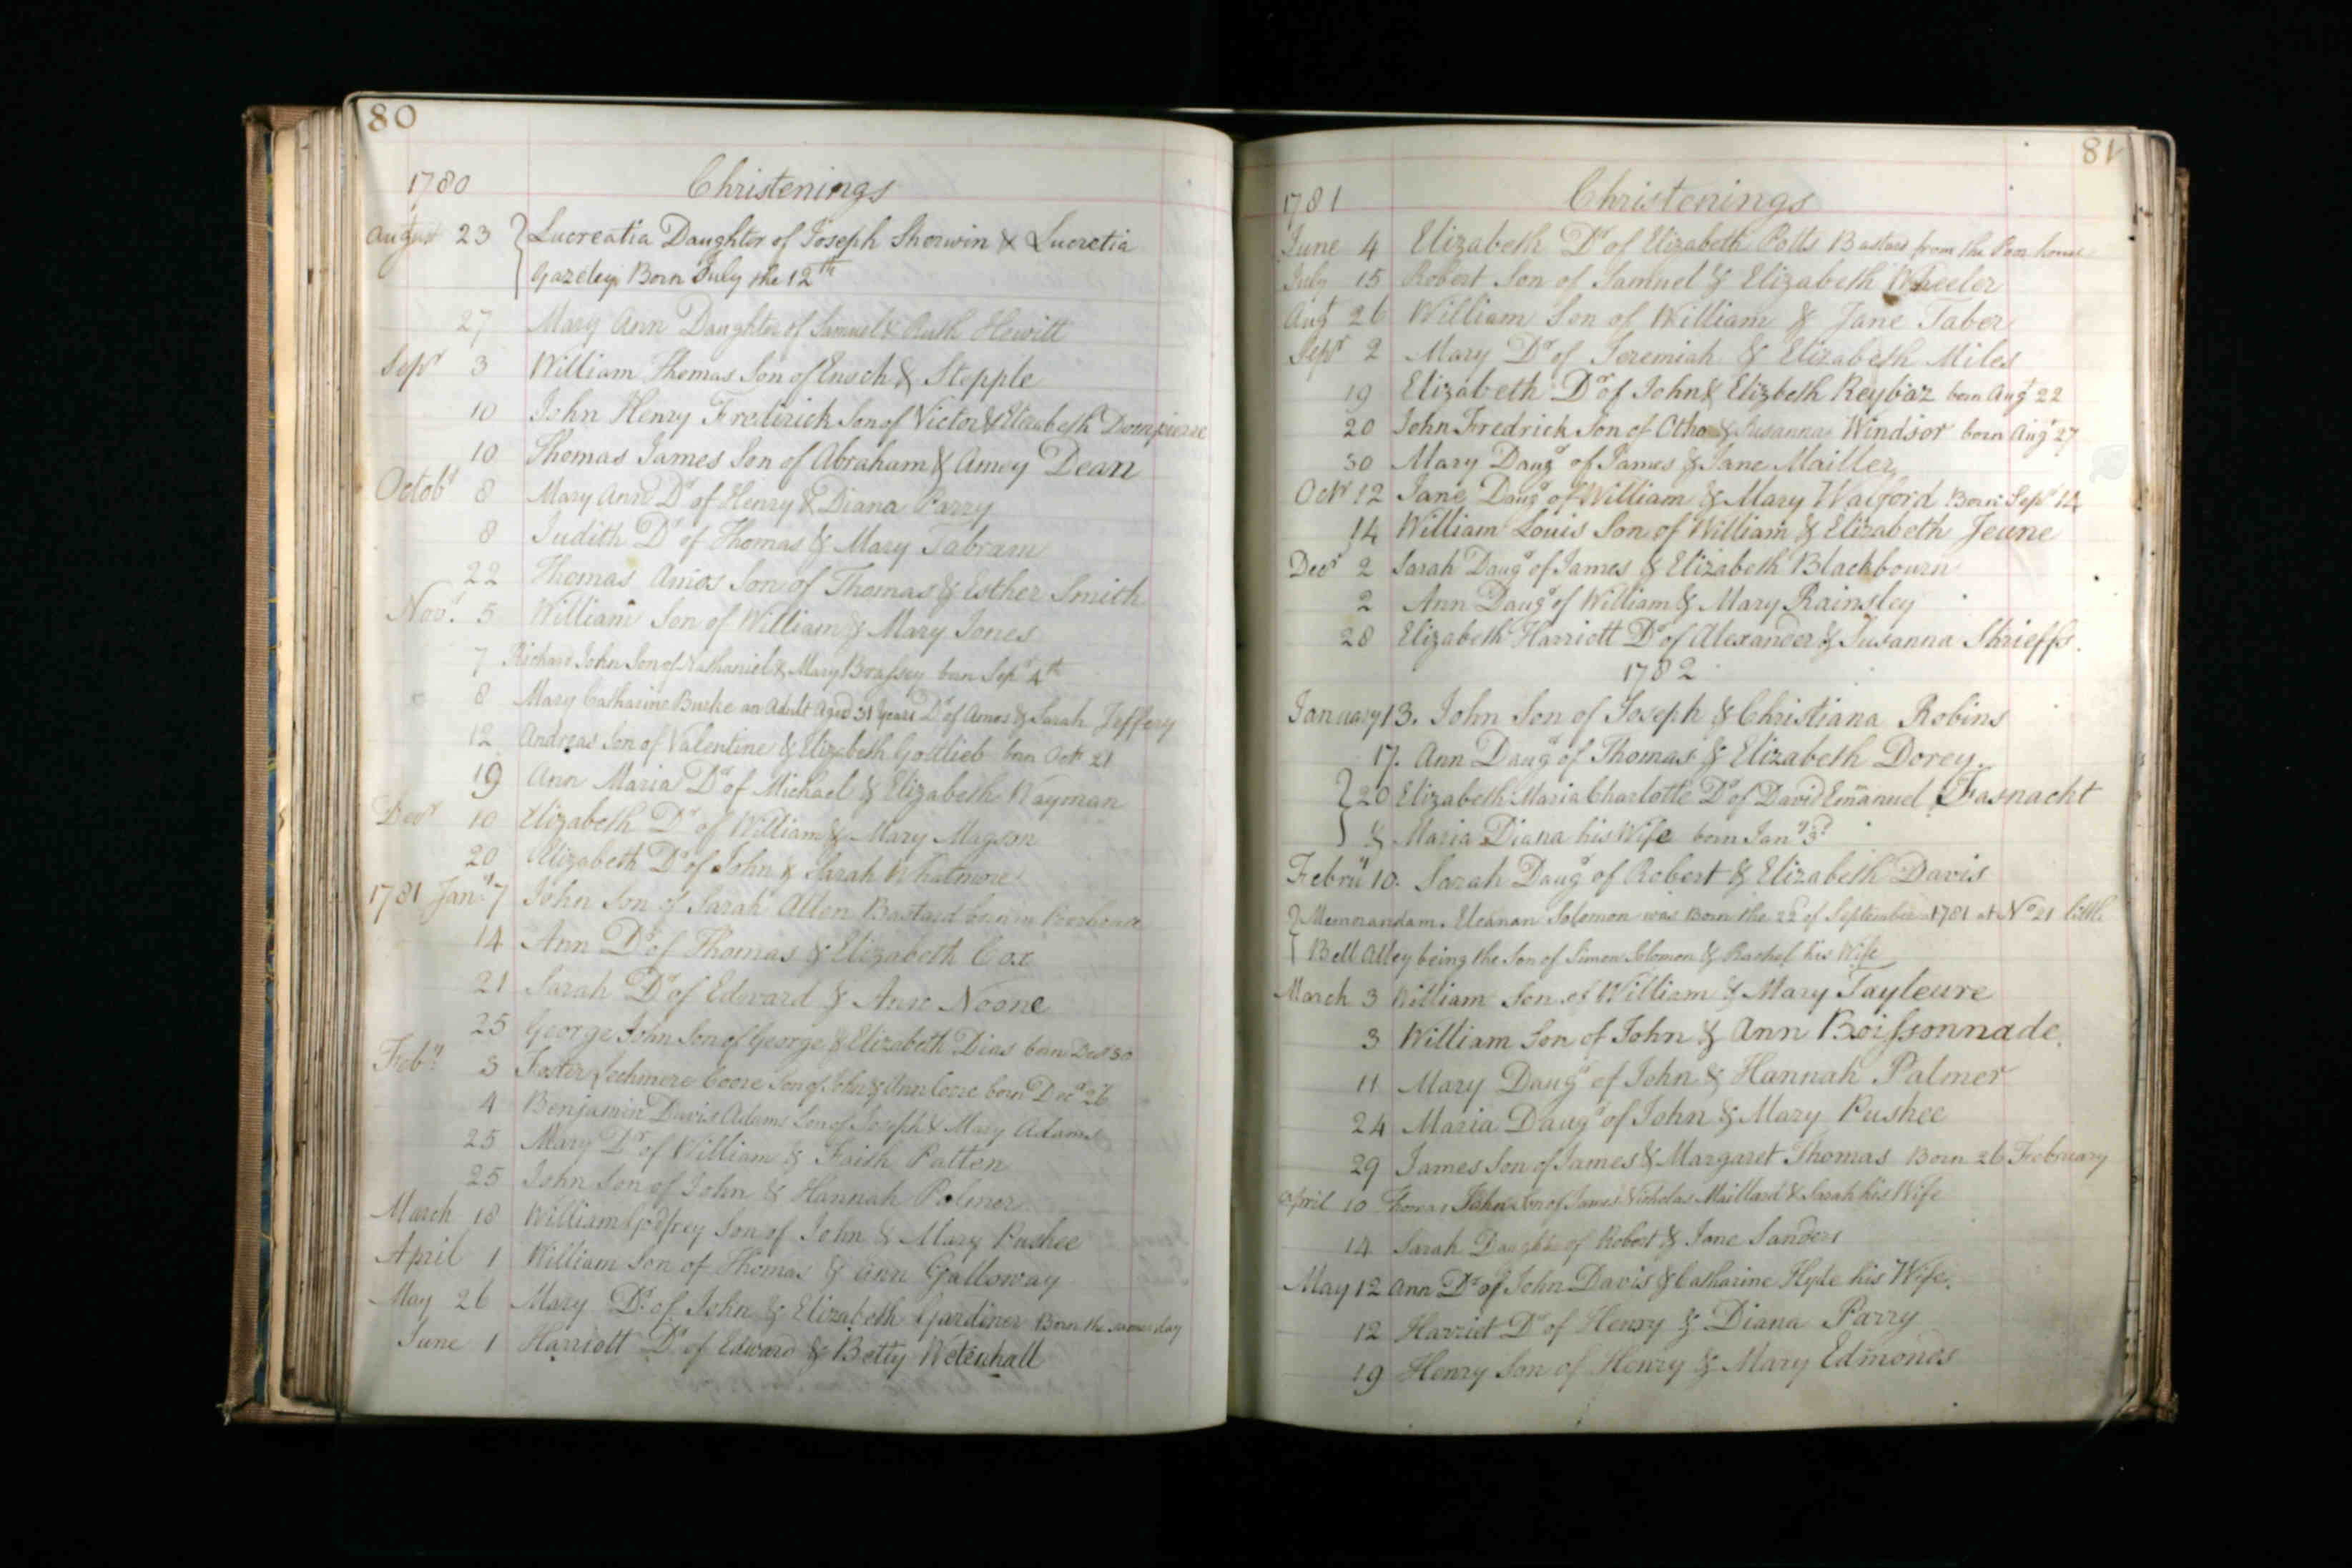 80
1780 Christenings
August 23 Lucreatia Daughter of Joseph Sherwin & Lucretia
Gazeley Born July the 12th
27 Mary Ann Daughter of Samuel & Ruth Hewitt
Sepr 3 William Thomas Son of Enoch & Stepple
10 John Henry Fredirick Son of Victor & Elizabeth Dompierre
10 Thomas James Son of Abraham & Amey Dean
Octobr 8 Mary Ann Dr of Henry & Diana Parry
8 Judith Dr of Thomas & Mary Tabram
22 Thomas Amos Son of Thomas & Esther Smith
Novr. 5 William Son of William & Mary Jones
7 Richard John Son of Nathaniel & Mary Brassey born Sepr 4th
8 Mary Catharine Burke an Adult Aged 31 Years Dr of Amos & Sarah Jeffery
12 Andreas Son of Valentine & Elizabeth Gottlieb born Octr 21
19 Ann Maria Dr of Michael & Elizabeth Wayman
Decr 10 Elizabeth Dr of William & Mary Magson
20 Elizabeth Dr of John & Sarah Whatmore
1781 Jany 7 John Son of Sarah Allen Bastard born in Poorhouse
14 Ann Dr of Thomas & Elizabeth Cox
21 Sarah Dr of Edward & Ann Noone
25 George John Son of George & Elizabeth Dias born Decr 30
Feby 3 Foster Lechmere Coore Son of John & Ann Coore born Decr 26
4 Benjamin Davis Adams Son of Joseph & Mary Adams
25 Mary Dr of William & Faith Patten
25 John Son of John & Hannah Palmer
March 18 William Godfrey Son of John & Mary Pushee
April 1 William Son of Thomas & Ann Galloway
May 26 Mary Dr. of John & Elizabeth Gardiner Born the same day
June 1 Harriott Dr of Edward & Betty Wetenhall
81
1781 Christenings
June 4 Elizabeth Dr of Elizabeth Potts Bastard from the Poor house
July 15 Robert Son of Samuel & Elizabeth Wheeler
Augt 26 William Son of William & Jane Taber
Sepr 2 Mary Dr of Jeremiah & Elizabeth Miles
19 Elizabeth Dr of John & Elizbeth Reybaz born Augt 22
20 John Fredrick Son of Otho & Susanna Windsor born Augt 27
30 Mary Daugr of James & Jane Mailler
Octr 12 Jane Daugr of William & Mary Walford Born Sepr 14
14 William Louis Son of William & Elizabeth Jeune
Decr 2 Sarah Daugr of James & Elizabeth Blackbourn
2 Ann Daugr of William & Mary Rainsley
28 Elizabeth Harriott Dr of Alexander & Susanna Shrieffs.
1782
January 13. John Son of Joseph & Christiana Robins
17. Ann Daugr of Thomas & Elizabeth Dorey.
20 Elizabeth Maria Charlotte Dr of David Emanuel Fasnacht
& Maria Diana his Wife born Jany 3d
Febru 10. Sarah Daugr of Robert & Elizabeth Davis
Memorandam. Eleanan Solomon was Born the 22d of September 1781 at No 21 little
Bell Alley being the Son of Simon Solomon & Rachel his Wife
March 3 William Son of William & Mary Tayleure
3 William Son of John & Ann Boissonnade.
11 Mary Daugr of John & Hannah Palmer
24 Maria Daugr of John & Mary Pushee
29 James Son of James & Margaret Thomas Born 26 February
April 10 Thomas John Son of James Nicholas Maillard & Sarah his Wife
14 Sarah Daughter of Robert & Jane Sanders
May 12 Ann Dr of John Davis & Catharine Hyde his Wife.
12 Harriet Dr of Henry & Diana Parry
19 Henry Son of Henry & Mary Edmonds